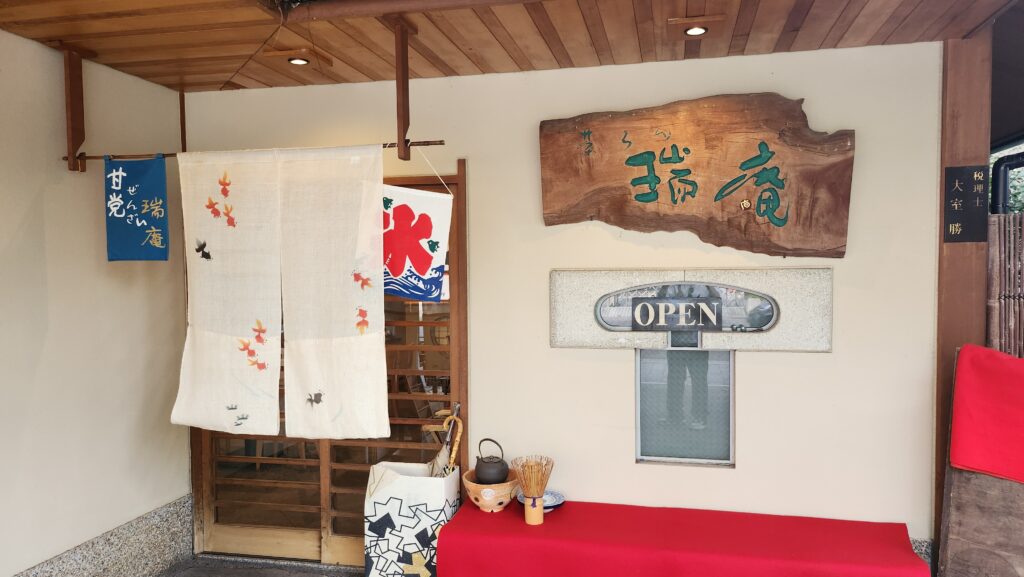 甘党
ぜんざい
瑞庵
氷
瑞庵
OPEN
税理士
大室 勝